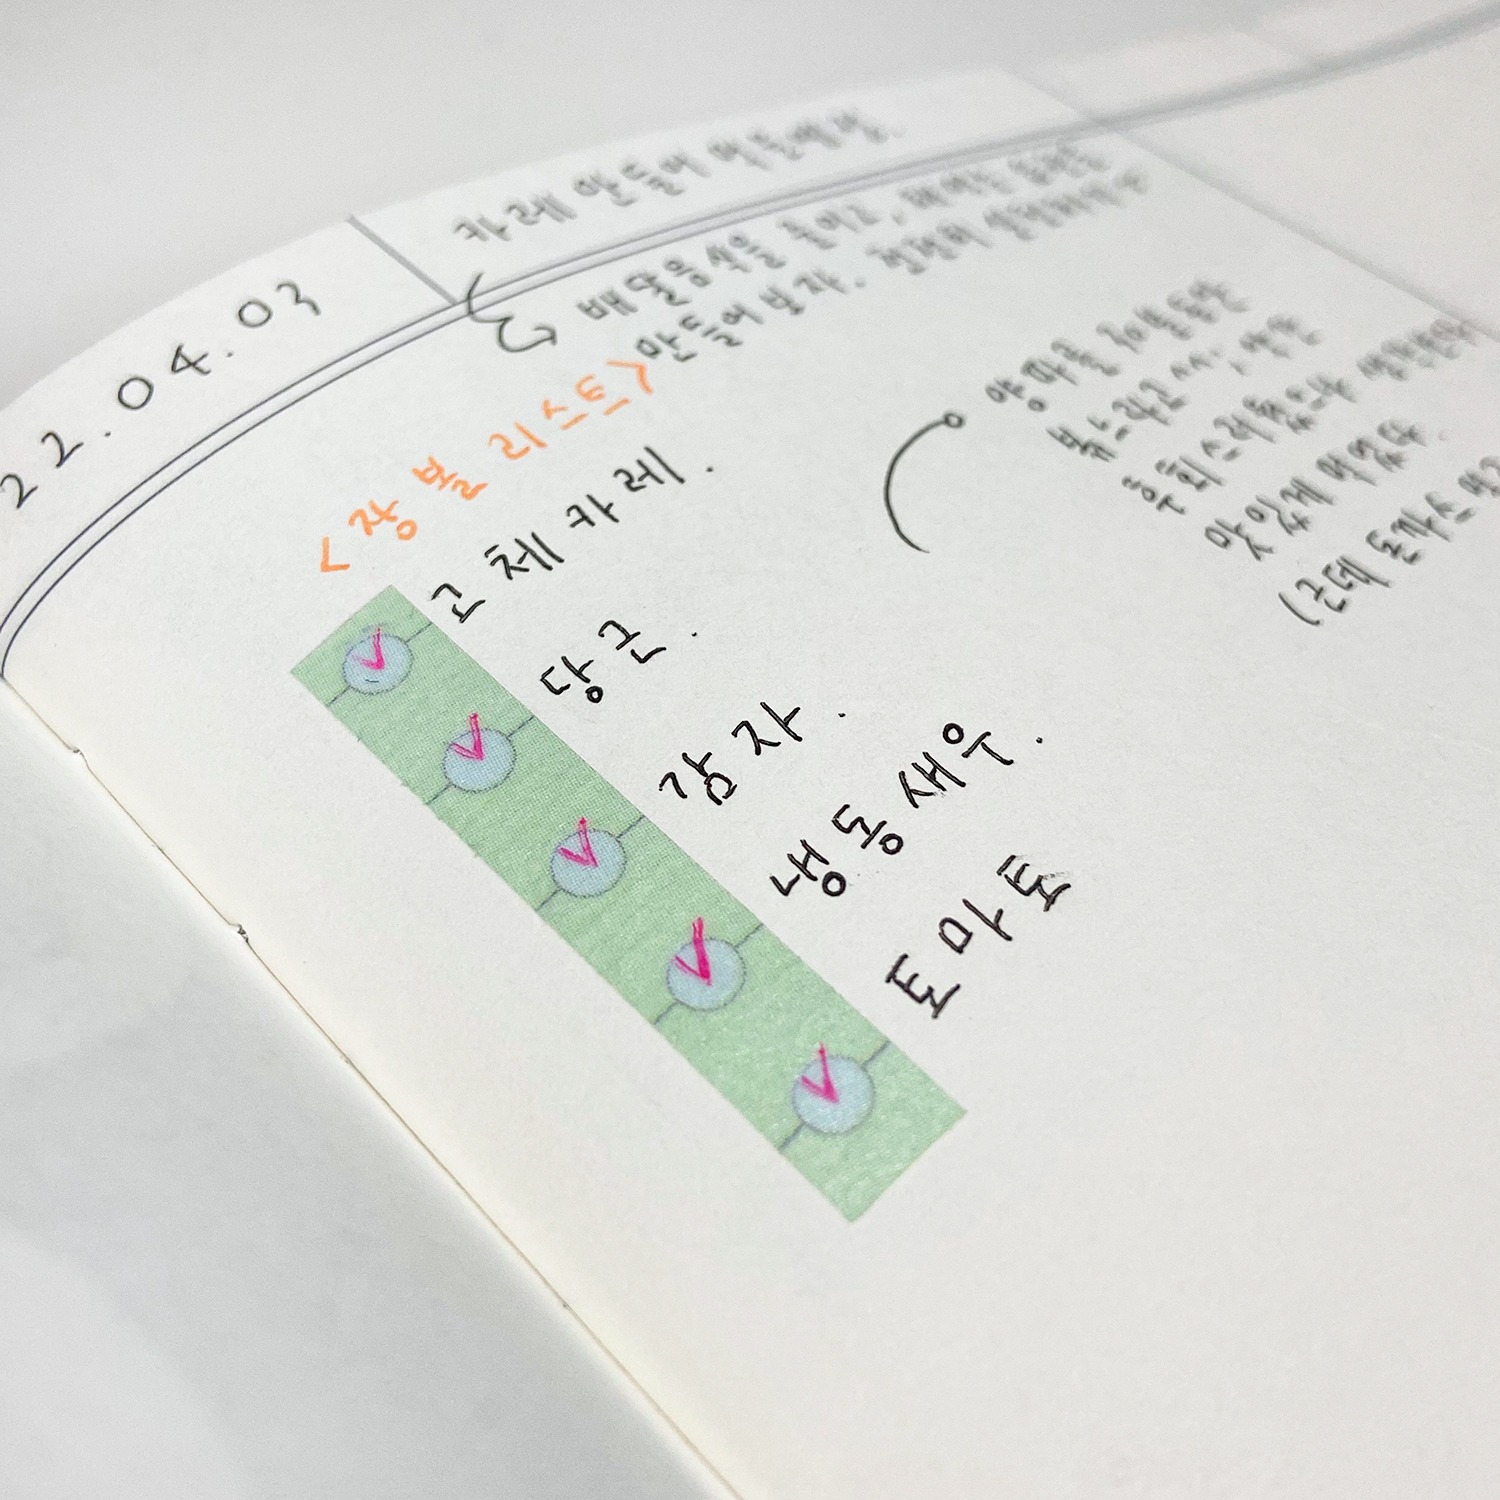 22.04.03
카레 만들어 먹은날.
배달음식을 줄이고,
만들어 먹자. 천천히
<장 볼 리스트>
고체카레.
당근.
감자.
냉동새우.
토마토
양파를 30분동안
볶느라고 ^^;,
맛있게 먹었다.
(근데 돈까스